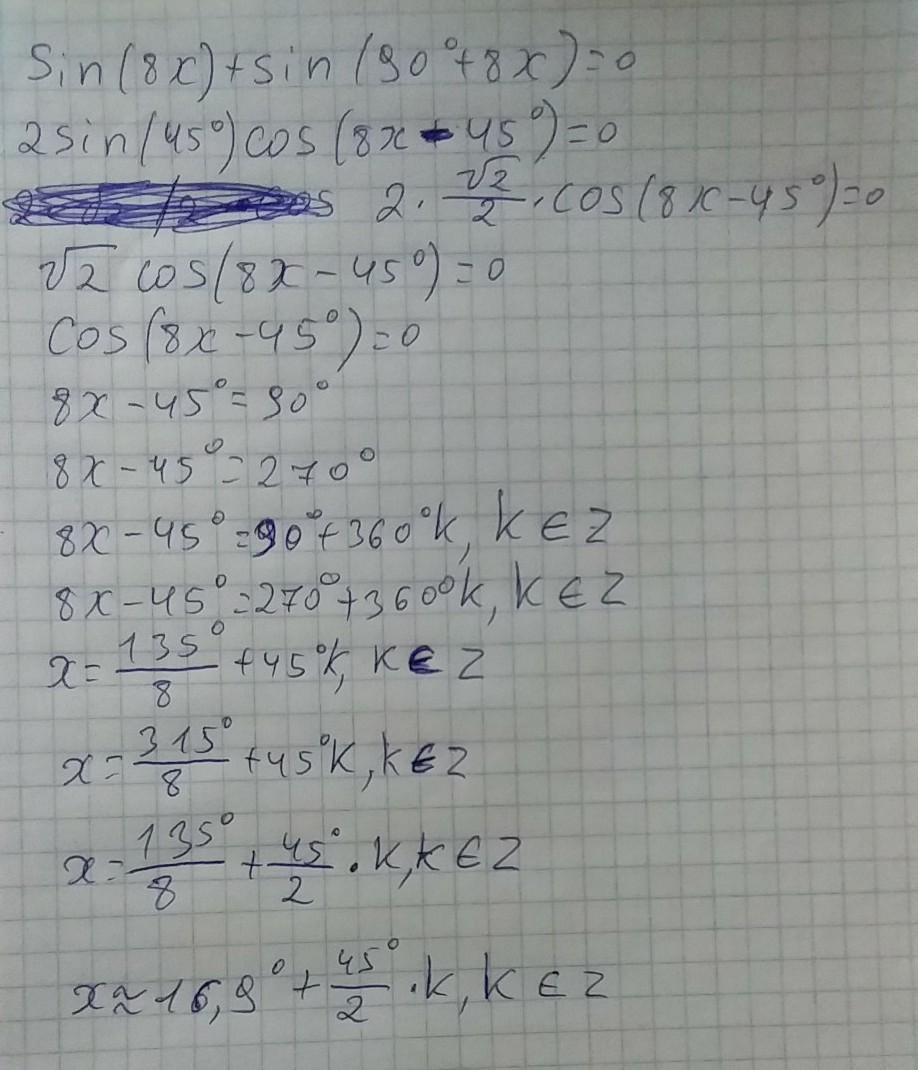 Sin(8x)+sin(90°+8x)=0
2sin(45°)cos(8x-45°)=0
2·√2/2·cos(8x-45°)=0
√2 cos(8x-45°)=0
Cos(8x-45°)=0
8x-45°=90°
8x-45°=270°
8x-45°=90°+360°k, k∈Z
8x-45°=270°+360°k, k∈Z
x=135°/8+45°k, k∈Z
x=315°/8+45°k, k∈Z
x=135°/8+45°/2·k, k∈Z
x≈16,9°+45°/2·k, k∈Z